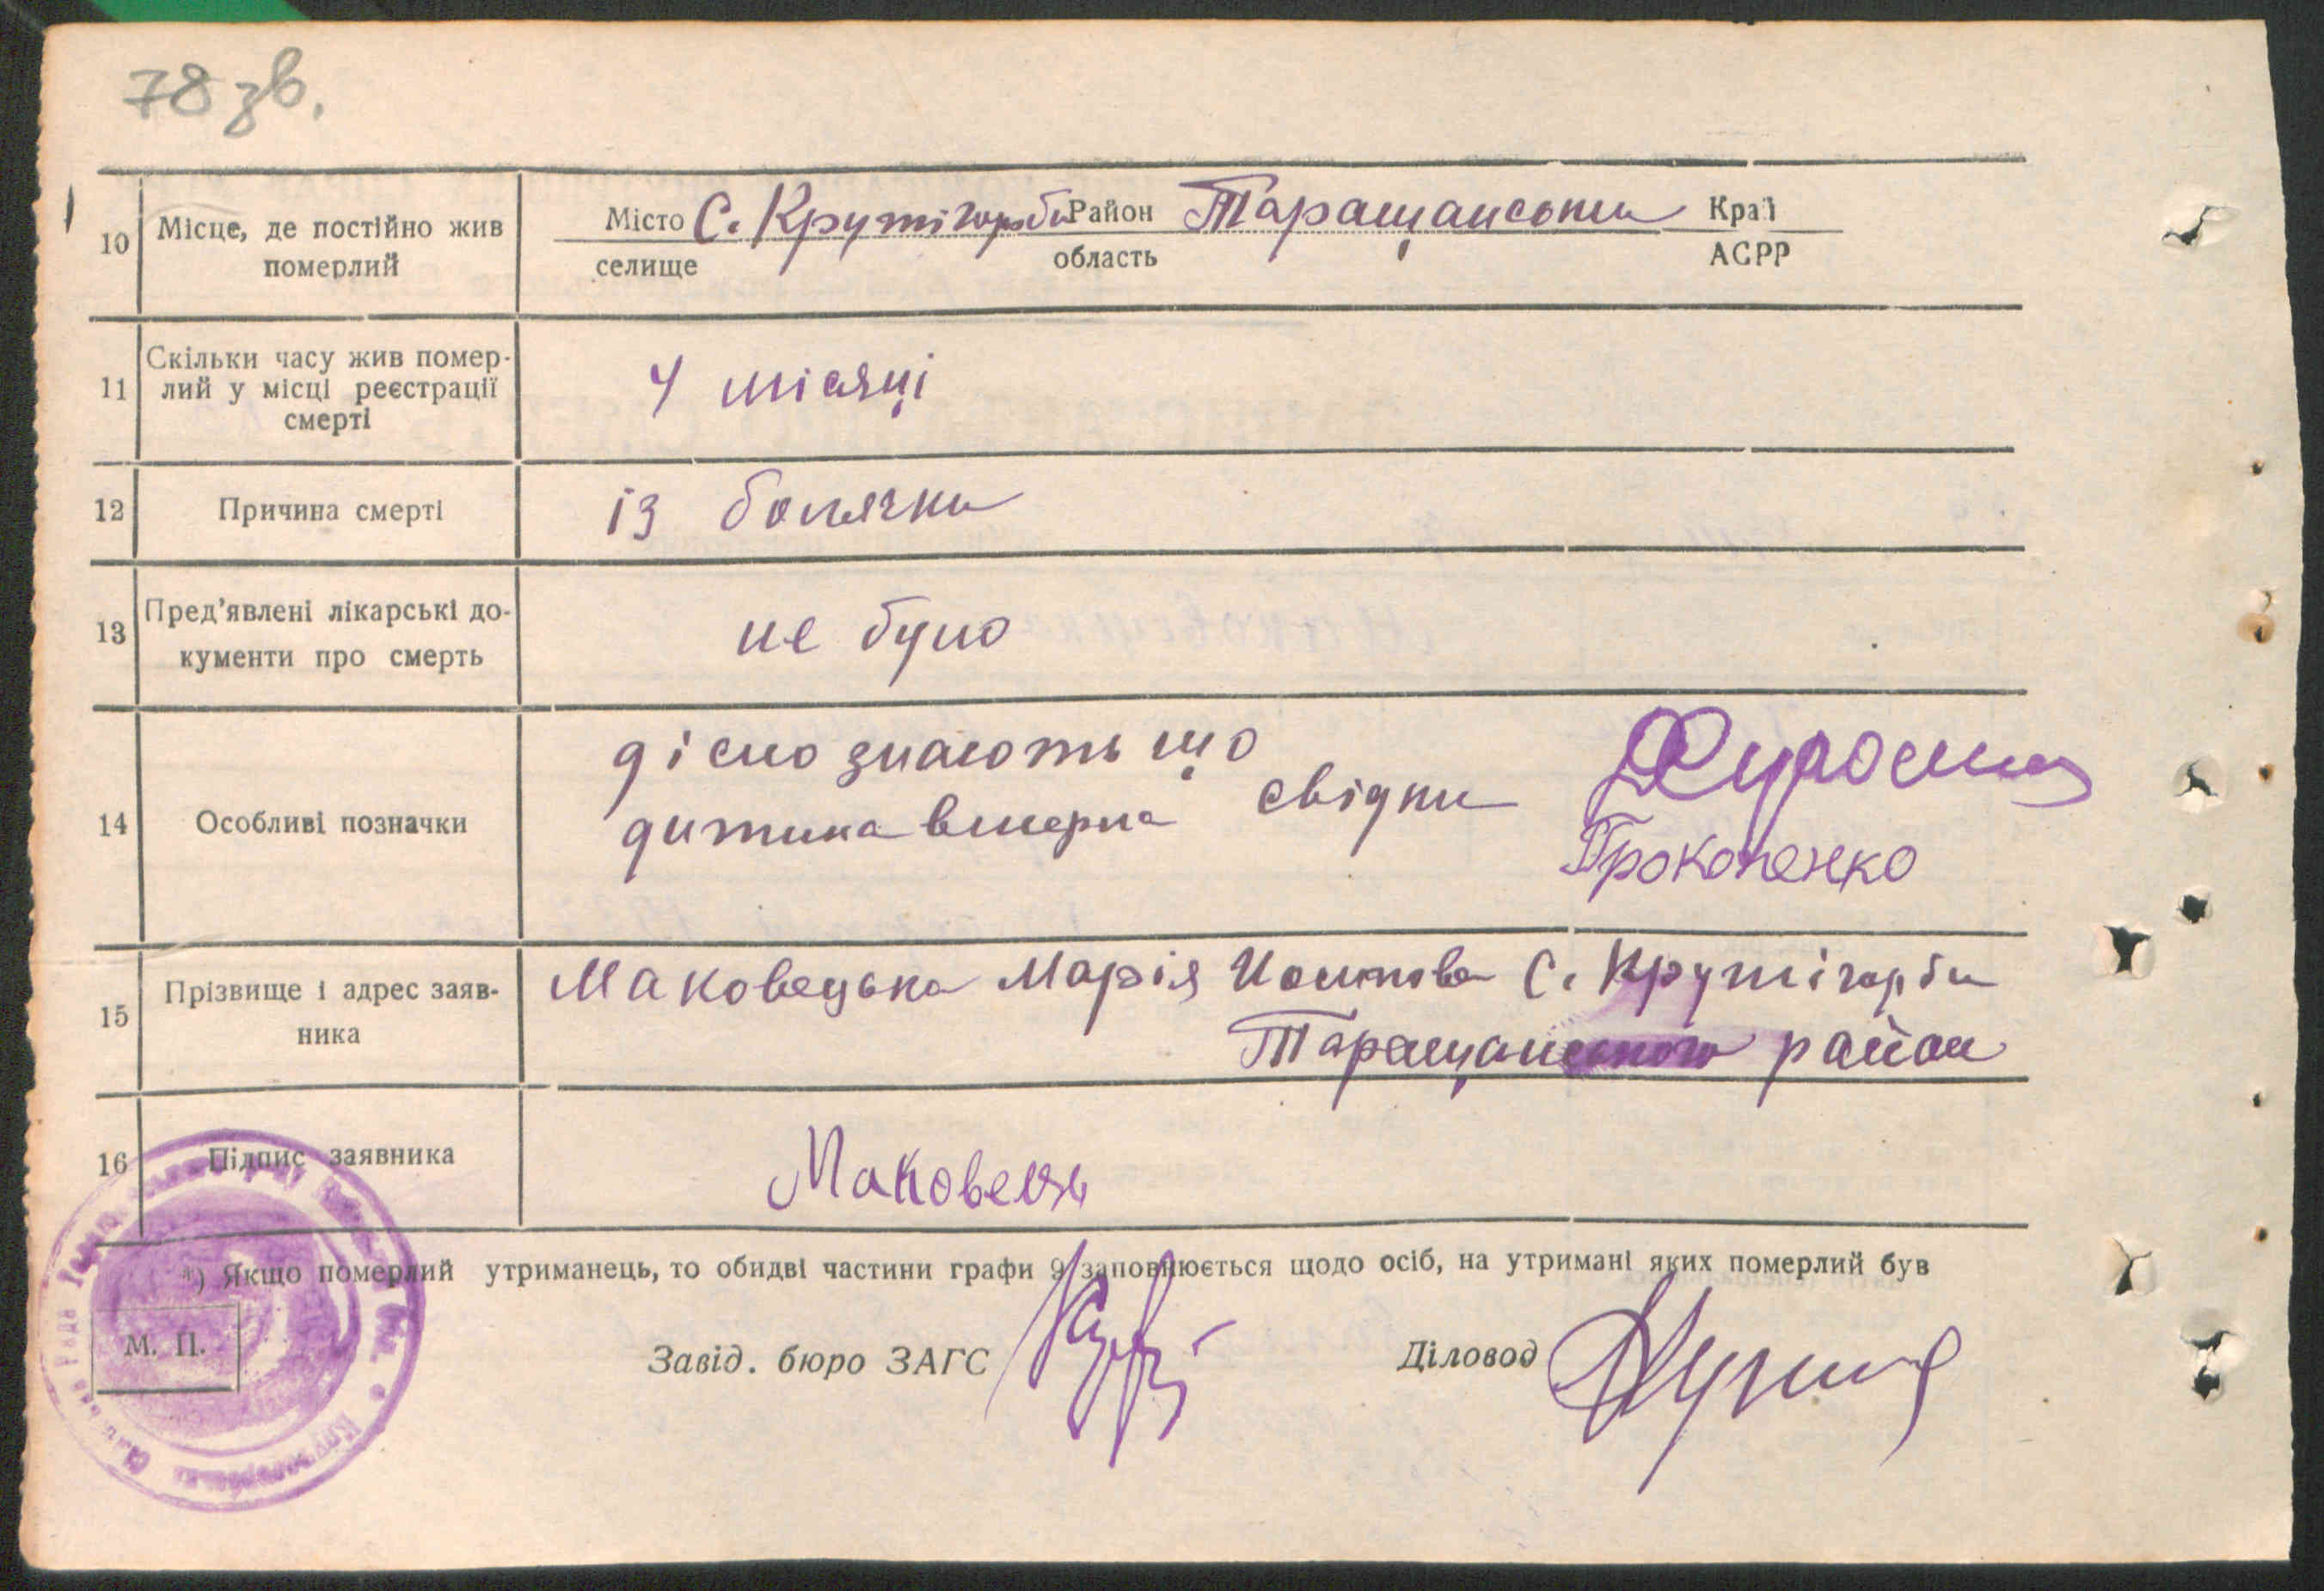 78 зв.
10 Місце, де постійно жив померлий
Місто С. Крутігорби Район Таращанськи Краї
селище область АСРР
11 Скільки часу жив помер-
лий у місці реєстрації
смерті
4 місяці
12 Причина смерті
із болячки
13 Пред’явлені лікарські до-
кументи про смерть
не було
14 Особливі позначки
дісно знають що
дитина вмерла свідки
Прокопенко
15 Прізвище і адрес заяв-
ника
Маковецька Марія С. Крутігорби
Таращанського район
16 Підпис заявника
Маковець
*) Якщо померлий утриманець, то обидві частини графи 9 заповнюється щодо осіб, на утримані яких померлий був
М. П.
Завід. бюро ЗАГС
Діловод